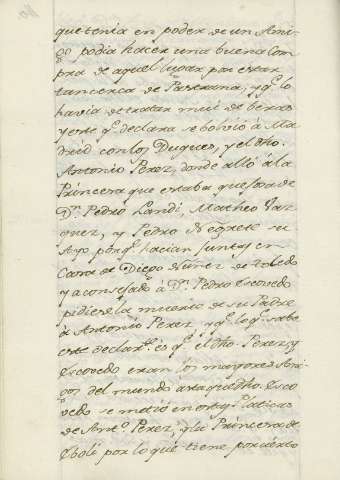 que tenia en poder de un Ami-
go podia hacer una buena Com
pra de aquel lugar por estar
tan cerca de Pastrana, y qe lo
havia de tratar mui de beras
y este qe declara se bolvió á Ma
drid con los Duques, y el dho.
Antonio Perez, donde alló á la
Princesa que estaba quejosa de
Dn. Pedro Landi, Matheo Vaz
quez, y Pedro Negrete su
Ayo porqe hacian Juntas en
Casa de Diego Nuñez de Toledo
y aconsejado á Dn. Pedro Escovedo
pidiese la muerte de su Padre
á Antonio Perez, y qe lo qe sabe
este declarte. es qe el dho Perez, y
Escovedo eran los mayores Ami
gos del mundo asta que dho. Esco
vedo se metió en
de Anto. Perez, y la Princesa de
Eboli por lo que tiene por cierto